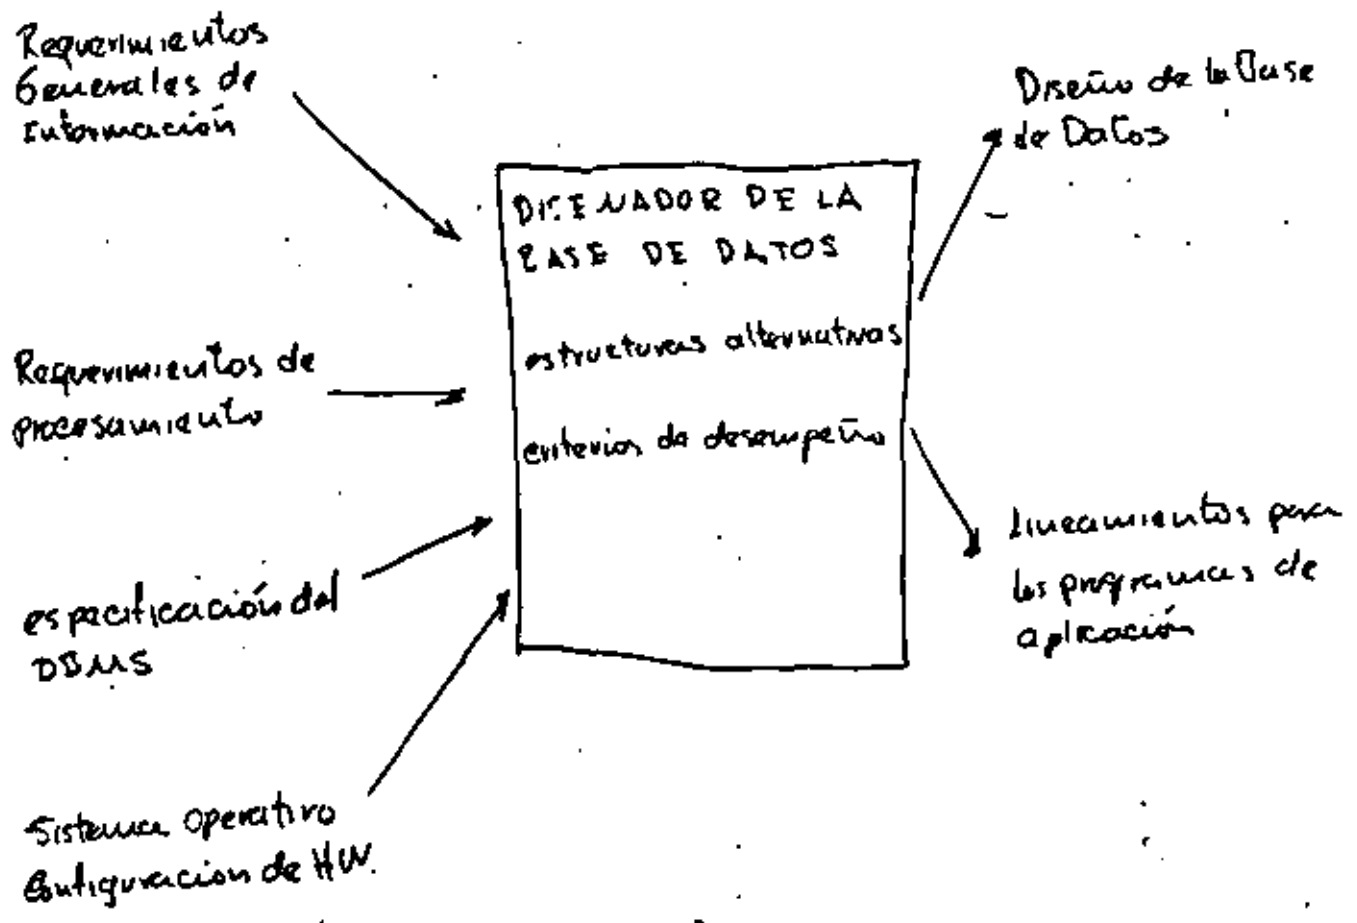 Requerimientos
Generales de
Información
Requerimientos de
procesamiento
especificación del
DBMS
Sistema Operativo
Configuracion de HW.
DISEÑADOR DE LA
BASE DE DATOS
estructuras alternativas
criterios de desempeño
Diseño de la Base
de Datos
Lineamientos para
los programas de
aplicación